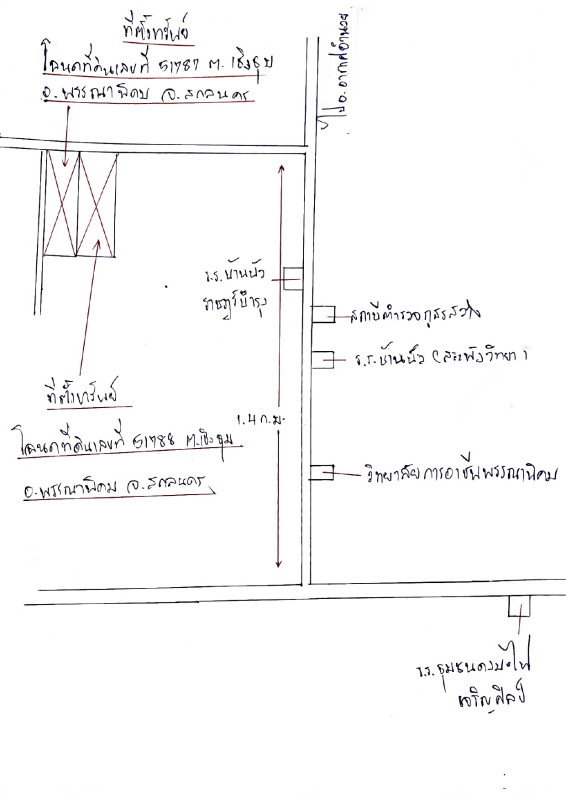 ที่ตั้งทรัพย์
โฉนดที่ดินเลขที่ 51787 ต. เชิงชุม
อ. พรรณานิคม จ. สกลนคร
ไป อ. อากาศอำนวย
ร.ร. บ้านบัว
ราษฎร์บำรุง
สถานีตำรวจภูธร
ร.ร. บ้านบัว (สระพังวิทยา)
ที่ตั้งทรัพย์
1.4 ก.ม.
โฉนดที่ดินเลขที่ 51788 ต. เชิงชุม
อ. พรรณานิคม จ. สกลนคร
วิทยาลัยการอาชีพพรรณานิคม
ร.ร. ชุมชน
เจริญศิลป์